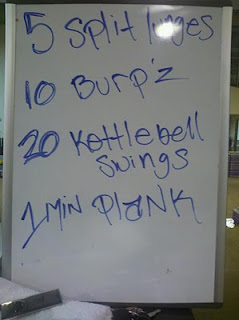 5 Split lunges
10 Burp'z
20 Kettlebell
Swings
1 Min PlaNK